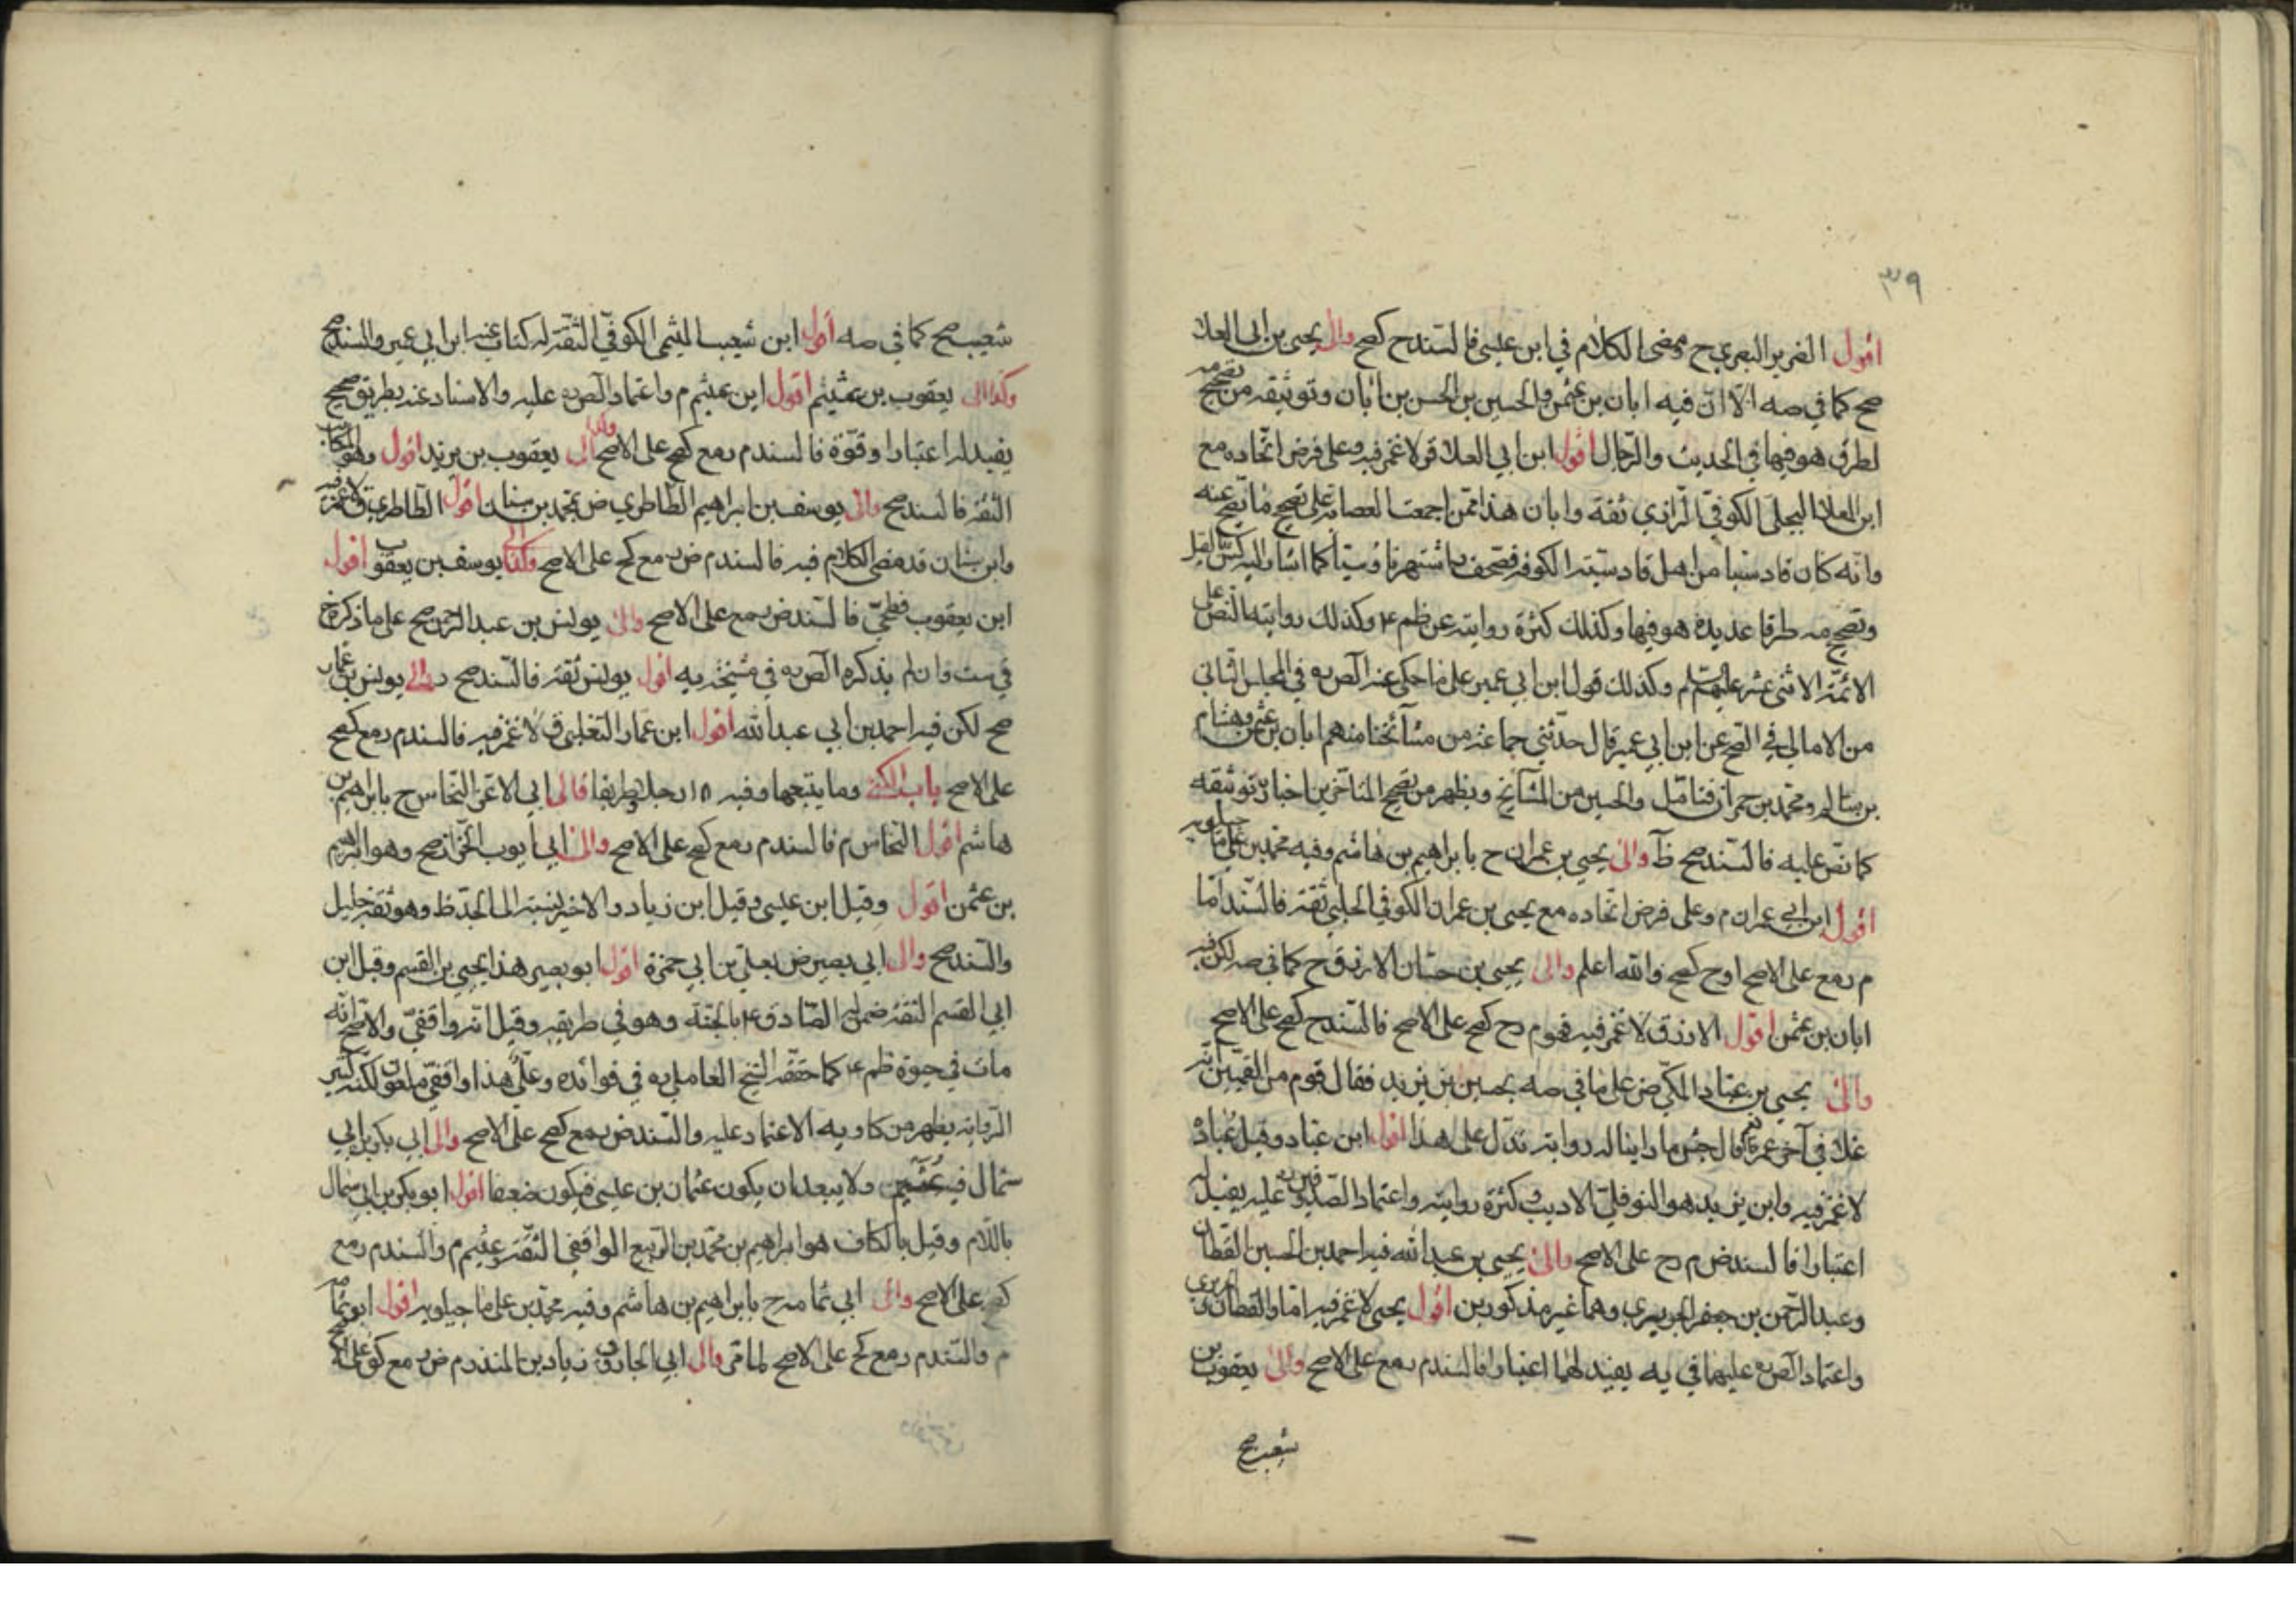 ٣٩
اقول الضرير البصري ح ومضى الكلام في ابن عيسى فالسند ح كصح والى يحيى بن ابي العلا
صح كما في صه الا ان فيه ابان بن عثمن والحسين بن الحسن بن ابان وتوثيقه من تصحيح مه
لطرق هو فيها في الحديث والرجال اقول ابن ابي العلا ق لا غمز فيه وعلى فرض اتحاده مع
ابن العلا البجلي الكوفي الرازي ثقة وابان هذا ممن اجمعت العصابة على تصحيح ما تصح عنه
وانه كان قادسيا من اهل قادسية الكوفة فصحف بما اشتهر ناوسيا كما اشار اليه
وتصحيح مه طرقا عديدة هو فيها وكذلك كثرة روايته عن ظم ع وكذلك روايته النص على
الائمة الاثنى عشر عليهم السلم وكذلك قول ابن ابي عمير على ما حكى عنه الص ره في المجلس الثاني
من الامالي في الصح عن ابن ابي عمير قال حدثني جماعة من مشائخنا منهم ابان بن عثمن وهشام
بن سالم ومحمد بن حمران فتامل والحسين من المشائخ ويظهر من تصحيح المتاخرين اخباره توثيقه
كما نص عليه فالسند صح ظآ والى يحيى بن عمران ح بابراهيم بن هاشم وفيه محمد بن علي ماجيلويه
اقول ابن ابي عمران م وعلى فرض اتحاده مع يحيى بن عمران الكوفي الحلبي ثقة فالسند اما
م رمع على الاصح اوح كصح والله اعلم والى يحيى بن حسان الازرق ح كما في صه لكن فيه
ابان بن عثمن اقول الازرق لا غمز فيه فهوم رح كصح على الاصح فالسند ح كصح على الاصح
والى يحيى بن عباد المكي ض على ما في صه بحسين بن يزيد فقال قوم من القميين انه
غلا في آخر عمره قال جش ما راينا له رواية تدل على هذا اقول ابن عباد وقيل عباد
لا غمز فيه وابن يزيد هو النوفلي الاديب وكثرة روايته واعتماد الصدوقين ره عليه يفيد له
اعتبارا فالسند ض م رح على الاصح والى يحيى بن عبدالله فيه احمد بن الحسين القطان
وعبدالرحمن بن جعفر الجريري وهما غير مذكورين اقول يحيى لا غمز فيه اما والقطان
واعتماد الص ره عليهما في يه يفيد لهما اعتبارا فالسند م رمع على الاصح والى يعقوب بن
شعيب صح
شعيب صح كما في صه اقول ابن شعيب الميثمي الكوفي الثقة له كتاب عنه ابن ابي عمير والسند صح
وكذا الى يعقوب بن عثيم اقول ابن عثيم م واعتماد الص ره عليه والاسناد عنه بطريق صحيح
يفيد له اعتبارا وقوة فالسند م رمع كصح على الاصح والى يعقوب بن يزيد اقول وهو الكاتب
الثقة فالسند صح والى يوسف بن ابراهيم الطاطري ض بمحمد بن سنان اقول الطاطري ق لا غمز فيه
وابن سنان قد مضى الكلام فيه فالسند م ض مع كح على الاصح وكذا الى يوسف بن يعقوب اقول
ابن يعقوب فطحي فالسند ض مع على الاصح والى يونس بن عبدالرحمن صح على ما ذكره خ
في ست وان لم يذكره الص ره في مشيخة يه اقول يونس ثقة فالسند صح والى يونس بن عمار
صح لكن فيه احمد بن ابي عبدالله اقول ابن عمار التغلبي ق لا غمز فيه فالسند م رمع كصح
على الاصح باب الكنى وما يتبعها وفيه ١٥ رجلا وطريقا فالى ابي الاغر النحاس ح بابراهيم بن
هاشم اقول النحاس م فالسند م رمع كصح على الاصح والى ابي ايوب الخزاز صح وهو ابراهيم
بن عثمن اقول وقيل ابن عيسى وقيل ابن زياد والاخير نسبة الى الجد ظ وهو ثقة جليل
والسند صح والى ابي بصير ض بعلي بن ابي حمزة اقول ابو بصير هذا يحيى بن القسم وقيل ابن
ابي القسم الثقة ضمن له الصادق ع بالجنة وهو في طريقه وقيل انه واقفي والاصح انه
مات في حيوة ظم ع كما حققه الشيخ العاملي ره في فوائده وعلي هذا واقفي ملعون لكنه كثير
الرواية يظهر من كا ويه الاعتماد عليه والسند ض مع كصح على الاصح والى ابي بكر بن ابي
سمال فيه عثيم ولا يبعد ان يكون عثمان بن عيسى فيكون ضعفا اقول ابو بكر بن ابي سمال
باللام وقيل بالكاف هو ابراهيم بن محمد بن الربيع الواقفي الثقة وعثيم م والسند م رمع
كصح على الاصح والى ابي ثمامه ح بابراهيم بن هاشم وفيه محمد بن علي ماجيلويه اقول ابو ثمامه
م والسند م رمع كح على الاصح لما مر والى ابي الجارود زياد بن المنذر م ض مع كو على الاصح